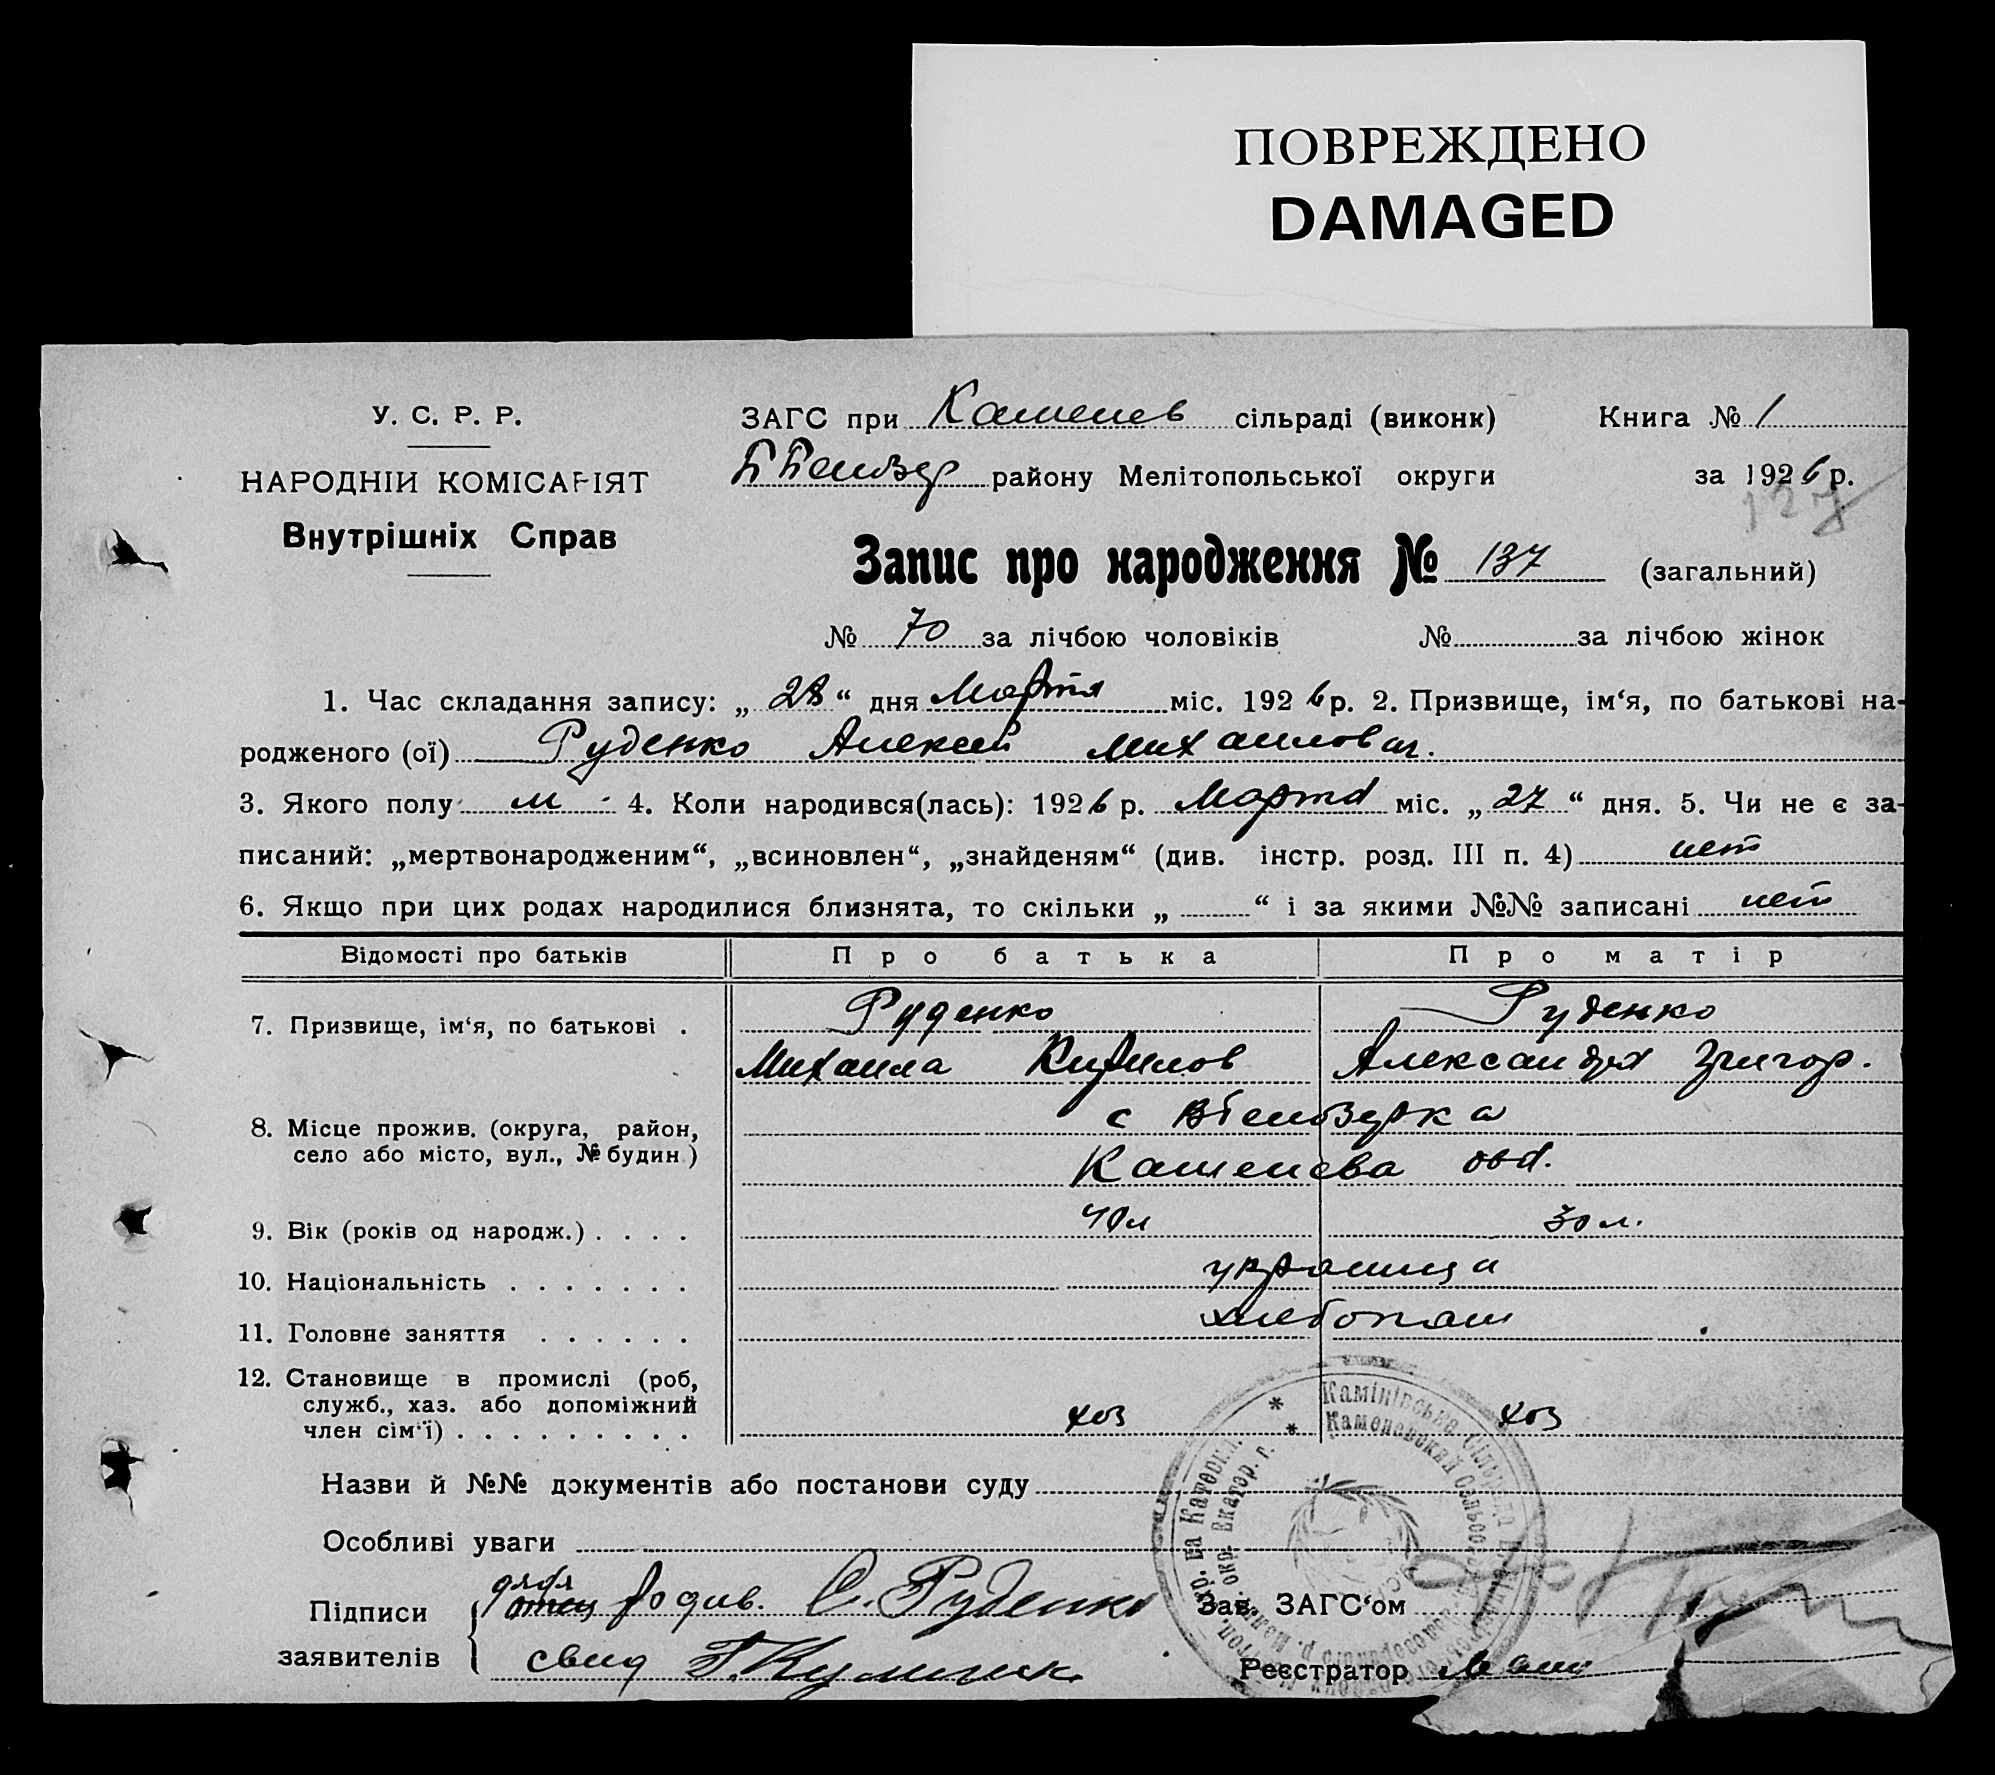 ПОВРЕЖДЕНО
DAMAGED
У. С. Р. Р.
НАРОДНІЙ КОМІСАРІЯТ
Внутрішніх Справ
ЗАГС при Каменев сільраді (виконк) Книга № 1
району Мелітопольської округи за 1926 р.
127
Запис про народження № 137 (загальний)
№ 70 за лічбою чоловіків № за лічбою жінок
1. Час складання запису: „28“ дня Марта міс. 1926 р. 2. Призвище, ім‘я, по батькові на-
родженого (ої) Руденко Алексей Михаилович.
3. Якого полу м 4. Коли народився(лась): 1926 р. Марта міс. „27“ дня. 5. Чи не є за-
писаний: „мертвонародженим“, „всиновлен“, „знайденям“ (див. інстр. розд. III п. 4) нет
6. Якщо при цих родах народилися близнята, то скільки „ “ і за якими №№ записані нет
Відомості про батьків Про батька Про матір
7. Призвище, ім‘я, по батькові . Руденко Руденко
Михаила Кирилов Александра Григор.
8. Місце прожив. (округа, район, с
село або місто, вул., № будин.) Каменева
9. Вік (років од народж.) . . . . 40 л 30 л.
10. Національність . . . . . . . украинци
11. Головне заняття . . . . . . хлебопаш
12. Становище в промислі (роб,
служб., хаз. або допоміжний
член сім‘ї) . . . . . . . . . хоз хоз
Назви й №№ документів або постанови суду
Особливі уваги
Підписи дядя отец родив. С. Руденко Зав. ЗАГС‘ом
заявителів свид Реєстратор
Камінівська Сільрада
Каменовский Сельсо